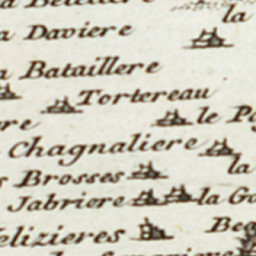 la
a Daviere
a Bataillere
Tortereau
re
le P
Chagnaliere
la
s Brosses
Jabriere
la G
elizieres
Be